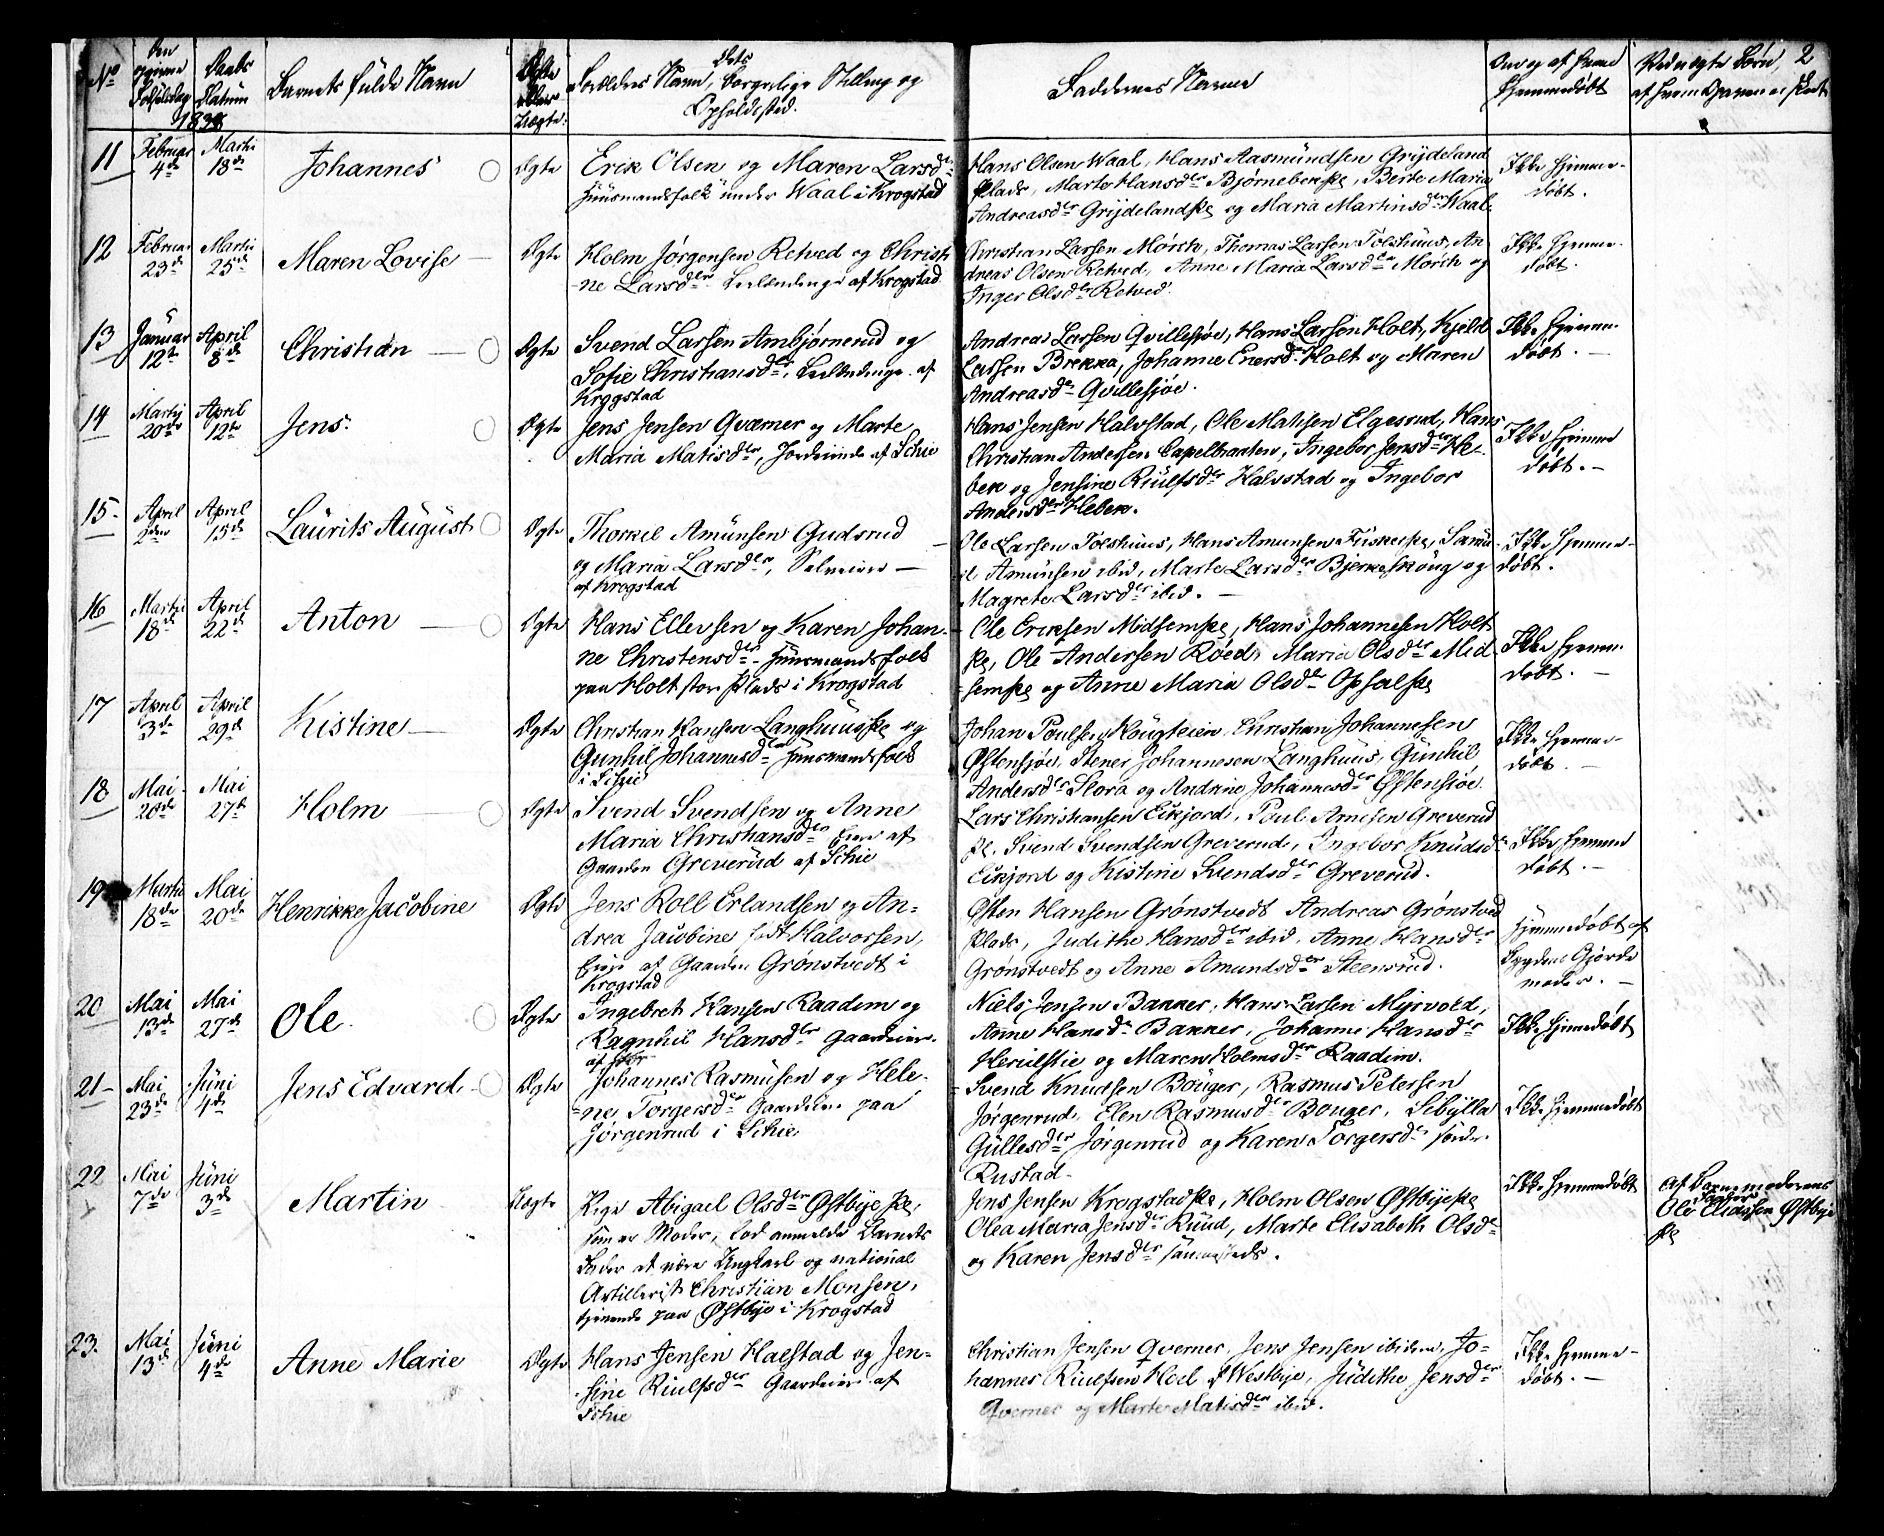 2
No
Den opgivne Fødselsdag
Daabs Datum
1838
Barnets fulde Navn
Ægte eller Uægte.
Forældres Navn, dets borgerlige Stilling og Opholdssted.
Faddernes Navne
Om og af hvem hjemmedøbt
11
Februar 4de
Martii 18de
Johannes
Ægte
Erik Olsen og Maren Larsdtr
Huusmandsfolk under Waal i Krogstad
Hans Olsen Waal, Hans Aasmundsen Grydeland
Plads, Marte Hansdtr Bjørnebekpl, Berte Maria
Andreasdtr Grydelandpl og Maria Martinsdtr Waal.
Ikke hjemmedøbt.
12
Februar 23de
Martii 25de
Maren Lovise
Ægte
Holm Jørgensen Retved og Christi-
-ne Larsdtr Leilændinge af Krogstad
Christian Larsen Mörch, Thomas Larsen Tolshuus, An-
dreas Olsen Retved, Anne Maria Larsdtr Mörch og
Inger Olsdtr Retved.
Ikke hjemmedøbt.
13
Januar 12te
April 8de
Christian
Ægte
Svend Larsen Ambjørnerud og
Sofie Christiansdtr, Leilændinge af
Krogstad
Andreas Larsen Qvillesjøe, Hans Larsen Holt, Kjeld
Larsen Brekka, Johanne Enersdtr Holt og Maren
Andreasdtr Qvillesjøe.
Ikke hjemmedøbt.
14
Martii 20de
April 12te
Jens
Ægte
Jens Jensen Qværner og Marte
Maria Matisdtr, Jordeiende af Schie
Hans Jensen Halvstad, Ole Matisen Elgesrud, Hans
Christian Andersen Capelbraaten, Ingebor Jensdtr He-
bek og Jensine Riulfsdtr Halvstad og Ingebor
Andersdtr Hebek.
Ikke hjemmedøbt.
15
April 2den
April 15de
Laurits August
Ægte
Thorkil Amunsen Gudsrud
og Maria Larsdtr, Selveiere
af Krogstad
Ole Larsen Tolshuus, Hans Amunsen Fuskepl, Samu-
-el Amunsen ibid, Marte Larsdtr Bjerkeskoug og
Magrete Larsdtr ibid.
Ikke hjemmedøbt.
16
Martii 18de
April 22de
Anton
Ægte
Hans Ellevsen og Karen Johan-
ne Christensdtr Huusmandsfolk
paa Holt store Plads i Krogstad
Ole Eriksen Midsempl, Hans Johannesen Holt
pl, Ole Andersen Röed, Maria Olsdtr Mid
sempl og Anne Maria Olsdtr Opsalpl
Ikke hjemmedøbt.
17
April 3de
April 29de
Kistine
Ægte
Christian Hansen Langhuuspl og
Gunhil Johannesdtr Huusmandsfolk
i Schie
Johan Poulsen Kougteien, Christian Johannesen
Østensjøe, Stener Johannesen Langhuus, Gunhil
Andersdtr Slora og Andrine Johannesdtr Østensjøe.
Ikke hjemmedøbt.
18
Mai 20de
Mai 27de
Holm
Ægte
Svend Svendsen og Anne
Maria Christiansdtr Eiere af
Gaarden Greverud af Schie
Lars Christiansen Eikjord, Poul Arnesen Greverud
pl, Svend Svendsen Greverud, Ingebor Knudsdtr
Eikjord og Kistine Svendsdtr Greverud.
Ikke hjemmedøbt.
19
Martii 18de
Mai 20de
Henrikke Jacobine
Ægte
Jens Roll Erlandsen og An-
drea Jacobine født Halvorsen,
Eiere af Gaarden Grønstvedt i
Krogstad
Østen Hansen Grønstvedt Andreas Grønstved
Plads, Judithe Hansdtr ibid, Anne Hansdtr
Grønstvedt og Anne Amundsdtr Steensrud.
Hjemmedøbt af Bygdens Gjordemoder.
20
Mai 13de
Mai 27de
Ole
Ægte
Ingebret Hansen Raadim og
Ragnhil Hansdtr Gaardeiere
Niels Jensen Bakker, Hans Larsen Myrvold,
Anne Hansdtr Bakker, Johanne Hansdtr
Heriulstie og Maren Holmsdtr Raadim.
Ikke hjemmedøbt
21
Mai 23de
Juni 4de
Jens Edvard
Ægte
Johannes Rasmusen og Hele-
-ne Torgersdtr Gaardeiere paa
Jørgenrud i Schie
Svend Knudsen Bouger, Rasmus Petersen
Jørgenrud, Elen Rasmusdtr Bouger, Sibylla
Gullesdtr Jørgenrud og Karen Torgersdtr søndre
Rustad.
Ikke hjemmedøbt
22
Mai 7de
Juni 3de
Martin
Uægte
Pige Abigael Olsdtr Østbye pl,
hun er Moder, lod anmelde Barnets
Fader at være Ungkarl og national
Artillerist Christian Monsen,
tjenende paa Østbye i Krogstad
Jens Jensen Krogstadpl, Holm Olsen Østbyepl
Olea Maria Jensdtr Ruud, Marte Elisabeth Olsdtr
og Karen Jensdtr sammesteds.
Ikke hjemmedøbt
Af Barnemoderens
Fader
Ole Eliassen Østbye
pl
23.
Mai 13de
Juni 4de
Anne Marie
Ægte
Hans Jensen Halstad og Jen-
sine Riulfsdtr Gaardeiere af
Schie
Christian Jensen Qverner, Jens Jensen ibidem, Jo-
hannes Riulfsen Hoel af Westbye, Judithe Jensdtr
Qverner og Marte Matisdtr ibid.
Ikke hjemmedøbt.